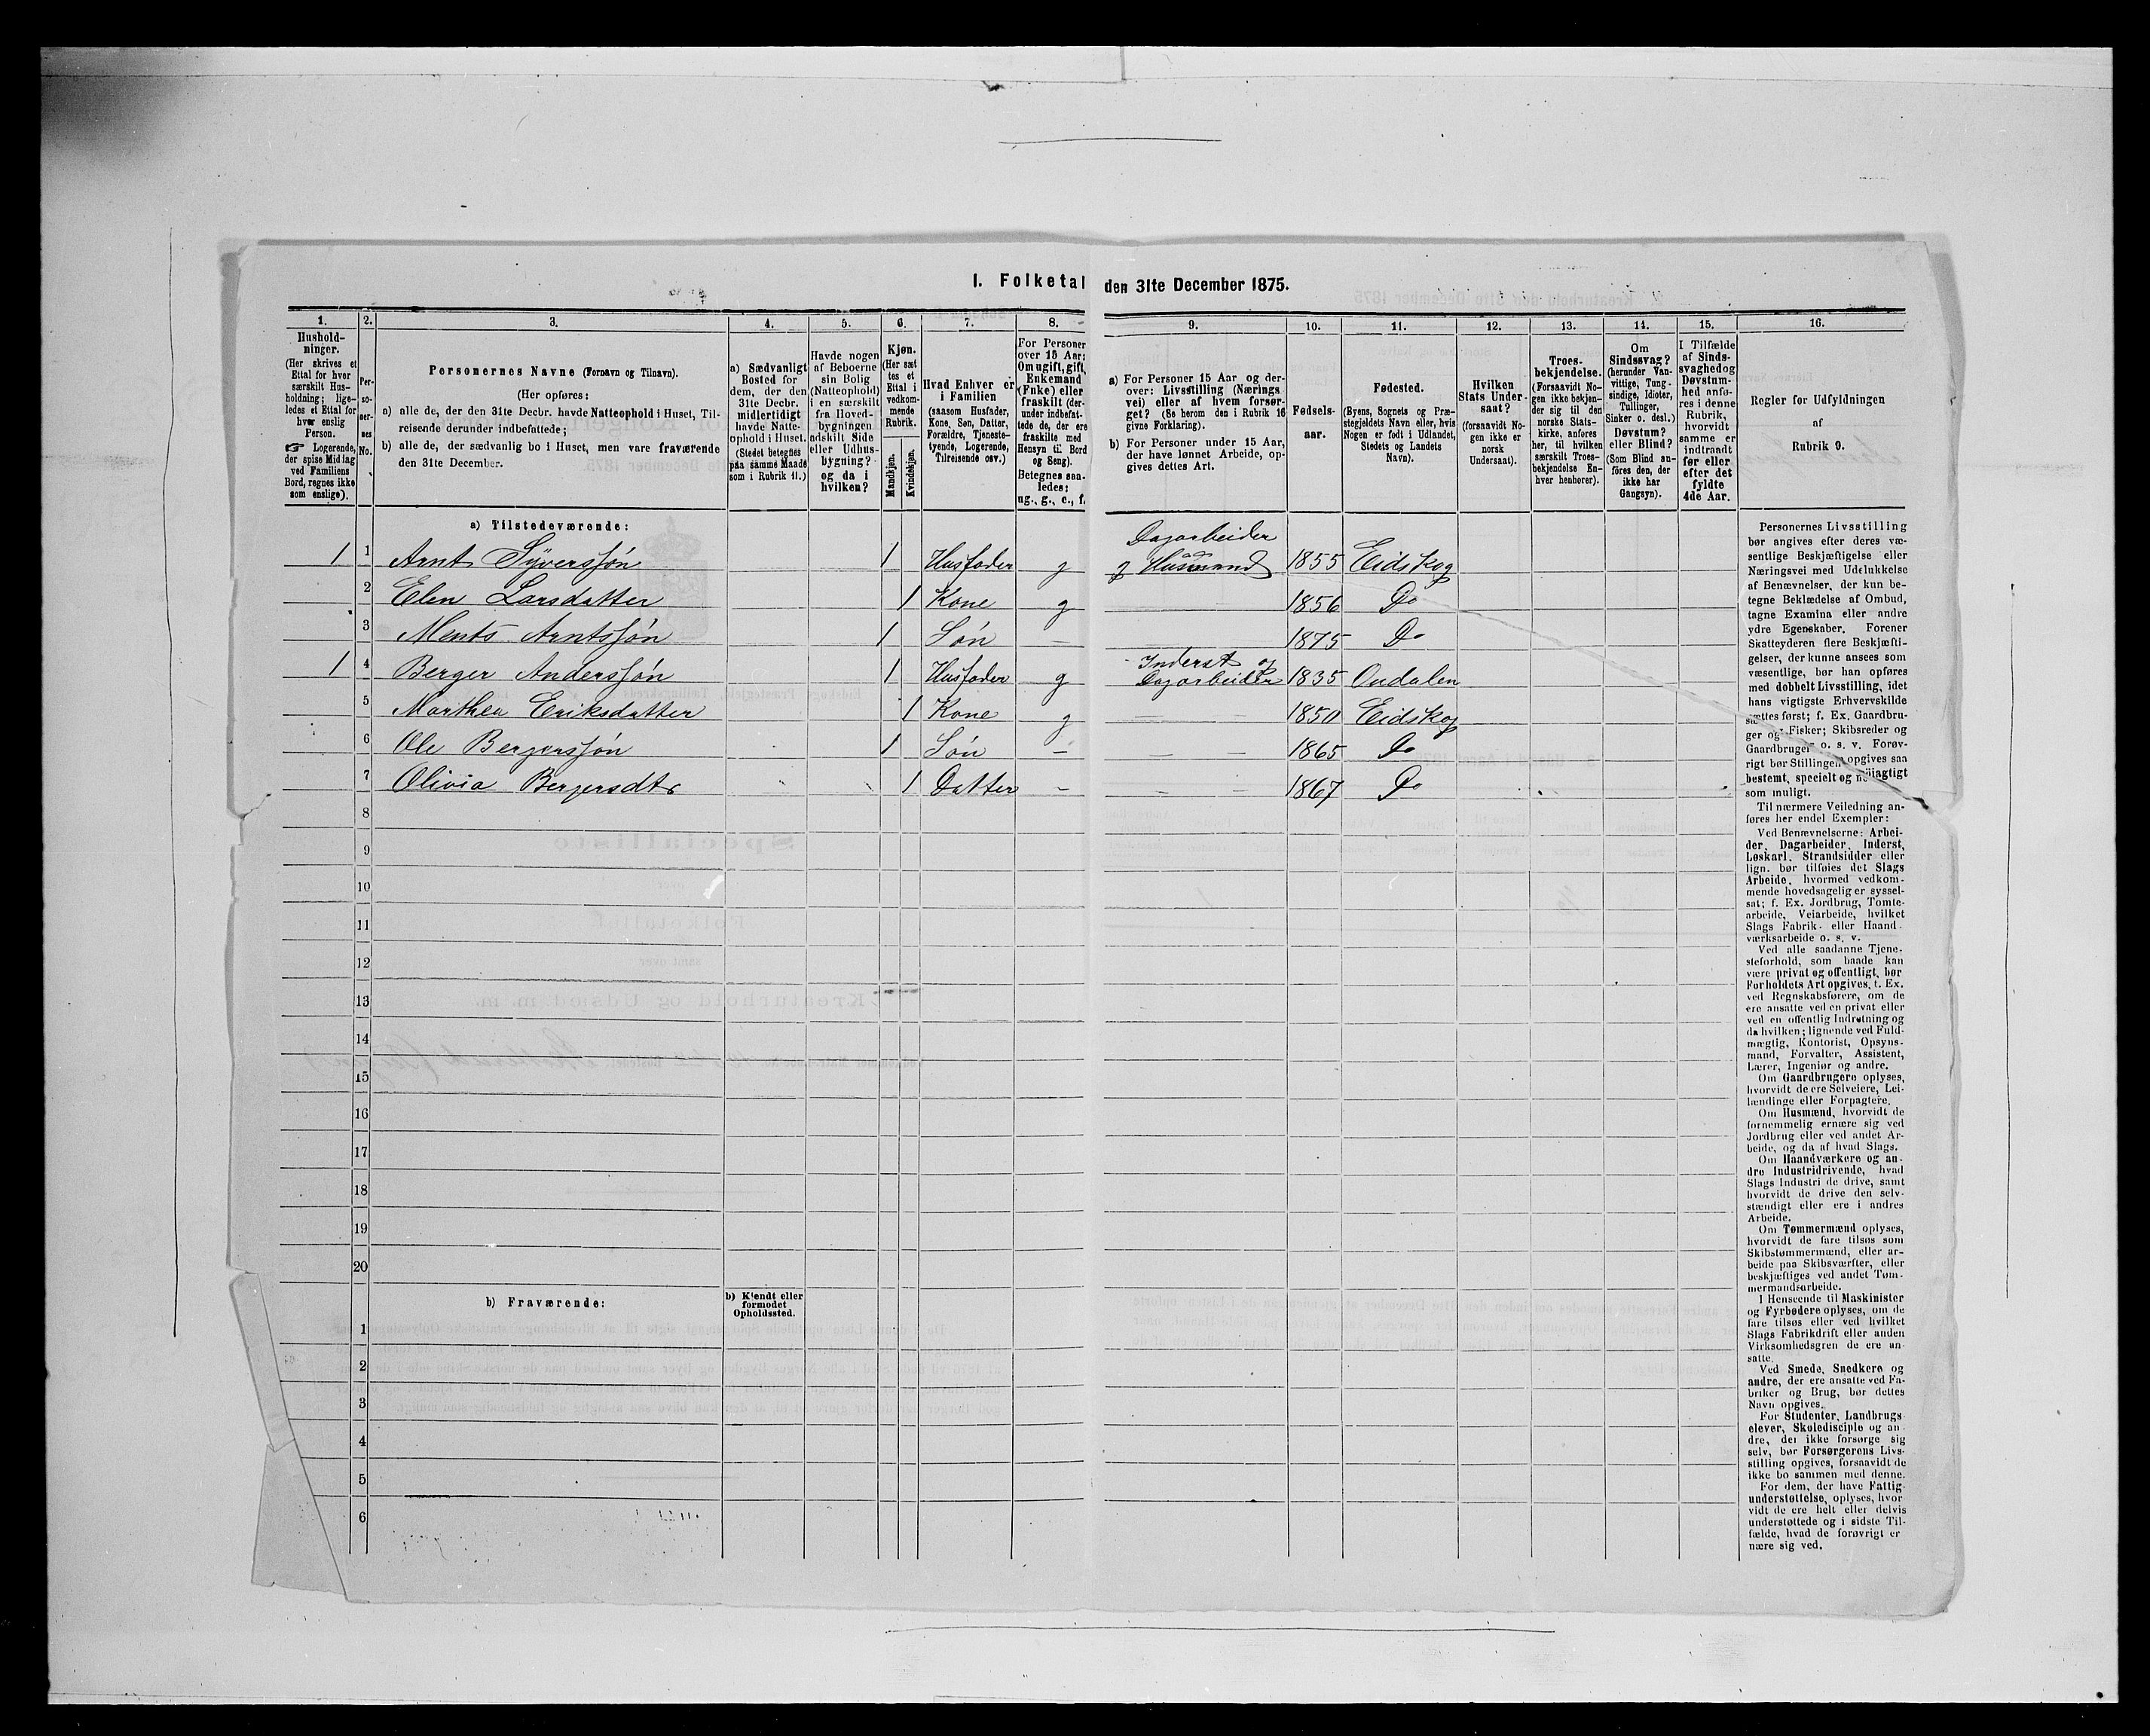 I. Folketal den 31te December 1875.
1. 2. 3. 4. 5. 6. 7. 8. 9. 10. 11. 12. 13. 14. 15. 16.
Hushold-
ninger.
(Her skrives et
Ettal for hver
særskilt Hus-
holdning; lige-
ledes et Ettal for
hver enslig
Person.
☞ Logerende,
der spise Middag
ved Familiens
Bord, regnes ikke
som enslige).
Per-
so-
ner-
nes
No.
Personernes Navne (Fornavn og Tilnavn).
(Her opføres:
a) alle de, der den 31te Decbr. havde Natteophold i Huset, Til-
reisende derunder indbefattede;
b) alle de, der sædvanlig bo i Huset, men vare fraværende
den 31te December.
a) Sædvanligt
Bosted for
dem, der den
31te Decbr.
midlertidigt
havde Natte-
ophold i Huset.
(Stedet betegnes
paa samme Maade
som i Rubrik 11.)
Havde nogen
af Beboerne
sin Bolig
(Natteophold)
i en særskilt
fra Hoved-
bygningen
adskilt Side
eller Udhus-
bygning?
og da i
hvilken?
Kjøn.
(Her sæt
tes et
Ettal i
vedkom-
mende
Rubrik.
Mandkjøn.
Kvindekjøn.
Hvad Enhver er
i Familien
(saasom Husfader,
Kone, Søn, Datter,
Forældre, Tjeneste-
tyende, Logerende,
Tilreisende osv.)
For Personer
over 15 Aar:
Om ugift, gift,
Enkemand
(Enke) eller
fraskilt (der-
under indbefat-
tede de, der ere
fraskilte med
Hensyn til Bord
og Seng).
Betegnes saa-
ledes:
ug., g., e., f.
a) For Personer 15 Aar og der-
over: Livsstilling (Nærings-
vei) eller af hvem forsør-
get? (Se herom den i Rubrik 16
givne Forklaring).
b) For Personer under 15 Aar,
der have lønnet Arbeide, op-
gives dettes Art.
Fødsels-
aar.
Fødested.
(Byens, Sognets og Præ-
stegjeldets Navn eller, hvis
Nogen er født i Udlandet,
Stedets og Landets
Navn).
Hvilken
Stats Under-
saat?
(forsaavidt No-
gen ikke er
norsk
Undersaat).
Troes-
bekjendelse.
(Forsaavidt No-
gen ikke bekjen-
der sig til den
norske Stats-
kirke, anføres
her, til hvilken
særskilt Troes-
bekjendelse En-
hver henhører).
Om
Sindssvag?
(herunder Van-
vittige, Tung-
sindige, Idioter,
Tullinger,
Sinker o. desl.)
Døvstum?
eller Blind?
(Som Blind an-
føres den, der
ikke har
Gangsyn).
I Tilfælde
af Sinds-
svaghed og
Døvstum-
hed anfø-
res i denne
Rubrik,
hvorvidt
samme er
indtraadt
før eller
efter det
fyldte
4de Aar.
Regler for Udfyldningen
af
Rubrik 9.
a) Tilstedeværende:
Dagarbeider
1 1 Arnt Syversøn 1 Husfader g og Husmand 1855 Eidskog
2 Elen Larsdatter 1 Kone g 1856 Do
3 Ments Arntsøn 1 Søn – 1875 Do
Inderst og
1 4 Berger Andersøn 1 Husfader g Dagarbeider 1835 Oudalen
5 Marthea Eriksdatter 1 Kone g — — 1850 Eidskog
6 Ole Bergersøn 1 Søn – — — 1865 Do
7 Olivia Bergersdtr 1 Datter – — — 1867 Do
8
9
10
11
12
13
14
15
16
17
18
19
20
b) Fraværende:
b) Kjendt eller
formodet
Opholdssted.
1
2
3
4
5
6
Personernes Livsstilling
bør angives efter deres væ-
sentlige Beskjæftigelse eller
Næringsvei med Udelukkelse
af Benævnelser, der kun be-
tegne Beklædelse af Ombud,
tagne Examina eller andre
ydre Egenskaber. Forener
Skatteyderen flere Beskjæfti-
gelser, der kunne ansees som
væsentlige, bør han opføres
med dobbelt Livsstilling, idet
hans vigtigste Erhvervskilde
sættes først; f. Ex. Gaardbru-
ger og Fisker; Skibsreder og
Gaardbruger o. s. v. Forøv-
rigt bør Stillingen opgives saa
bestemt, specielt og nøiagtigt
som muligt.
Til nærmere Veiledning an-
føres her endel Exempler:
Ved Benævnelserne: Arbei-
der, Dagarbeider, Inderst,
Løskarl, Strandsidder eller
lign. bør tilføies det Slags
Arbeide, hvormed vedkom-
mende hovedsagelig er syssel-
sat; f. Ex. Jordbrug, Tomte-
arbeide, Veiarbeide, hvilket
Slags Fabrik- eller Haand-
værksarbeide o. s. v.
Ved alle saadanne Tjene-
steforhold, som baade kan
være privat og offentligt, bør
Forholdets Art opgives, f. Ex.
ved Regnskabsførere, om de
ere ansatte ved en privat eller
ved en offentlig Indretning og
da hvilken; lignende ved Fuld-
mægtig, Kontorist, Opsyns-
mand, Forvalter, Assistent,
Lærer, Ingeniør og andre.
Om Gaardbrugere oplyses,
hvorvidt de ere Selveiere, Lei-
lændinge eller Forpagtere.
Om Husmænd, hvorvidt de
fornemmelig ernære sig ved
Jordbrug eller ved andet Ar-
beide, og da af hvad Slags.
Om Haandværkere og an-
dre Industridrivende, hvad
Slags Industri de drive, samt
hvorvidt de drive den selv-
stændigt eller ere i andres
Arbeide.
Om Tømmermænd oplyses,
hvorvidt de fare tilsøs som
Skibstømmermænd, eller ar-
beide paa Skibsværfter, eller
beskjæftiges ved andet Tøm-
mermandsarbeide.
I Henseende til Maskinister
og Fyrbødere oplyses, om de
fare tilsøs eller ved hvilket
Slags Fabrikdrift eller anden
Virksomhedsgren de ere an-
satte.
Ved Smede, Snedkere og
andre, der ere ansatte ved Fa-
briker og Brug, bør dettes
Navn opgives.
For Studenter, Landbrugs-
elever, Skoledisciple og an-
dre, der ikke forsørge sig
selv, bør Forsørgerens Livs-
stilling opgives, forsaavidt de
ikke bo sammen med denne.
For dem, der have Fattig-
understøttelse, oplyses, hvor-
vidt de ere helt eller delvis
understøttede og i sidste Til-
fælde, hvad de forøvrigt er-
nære sig ved.